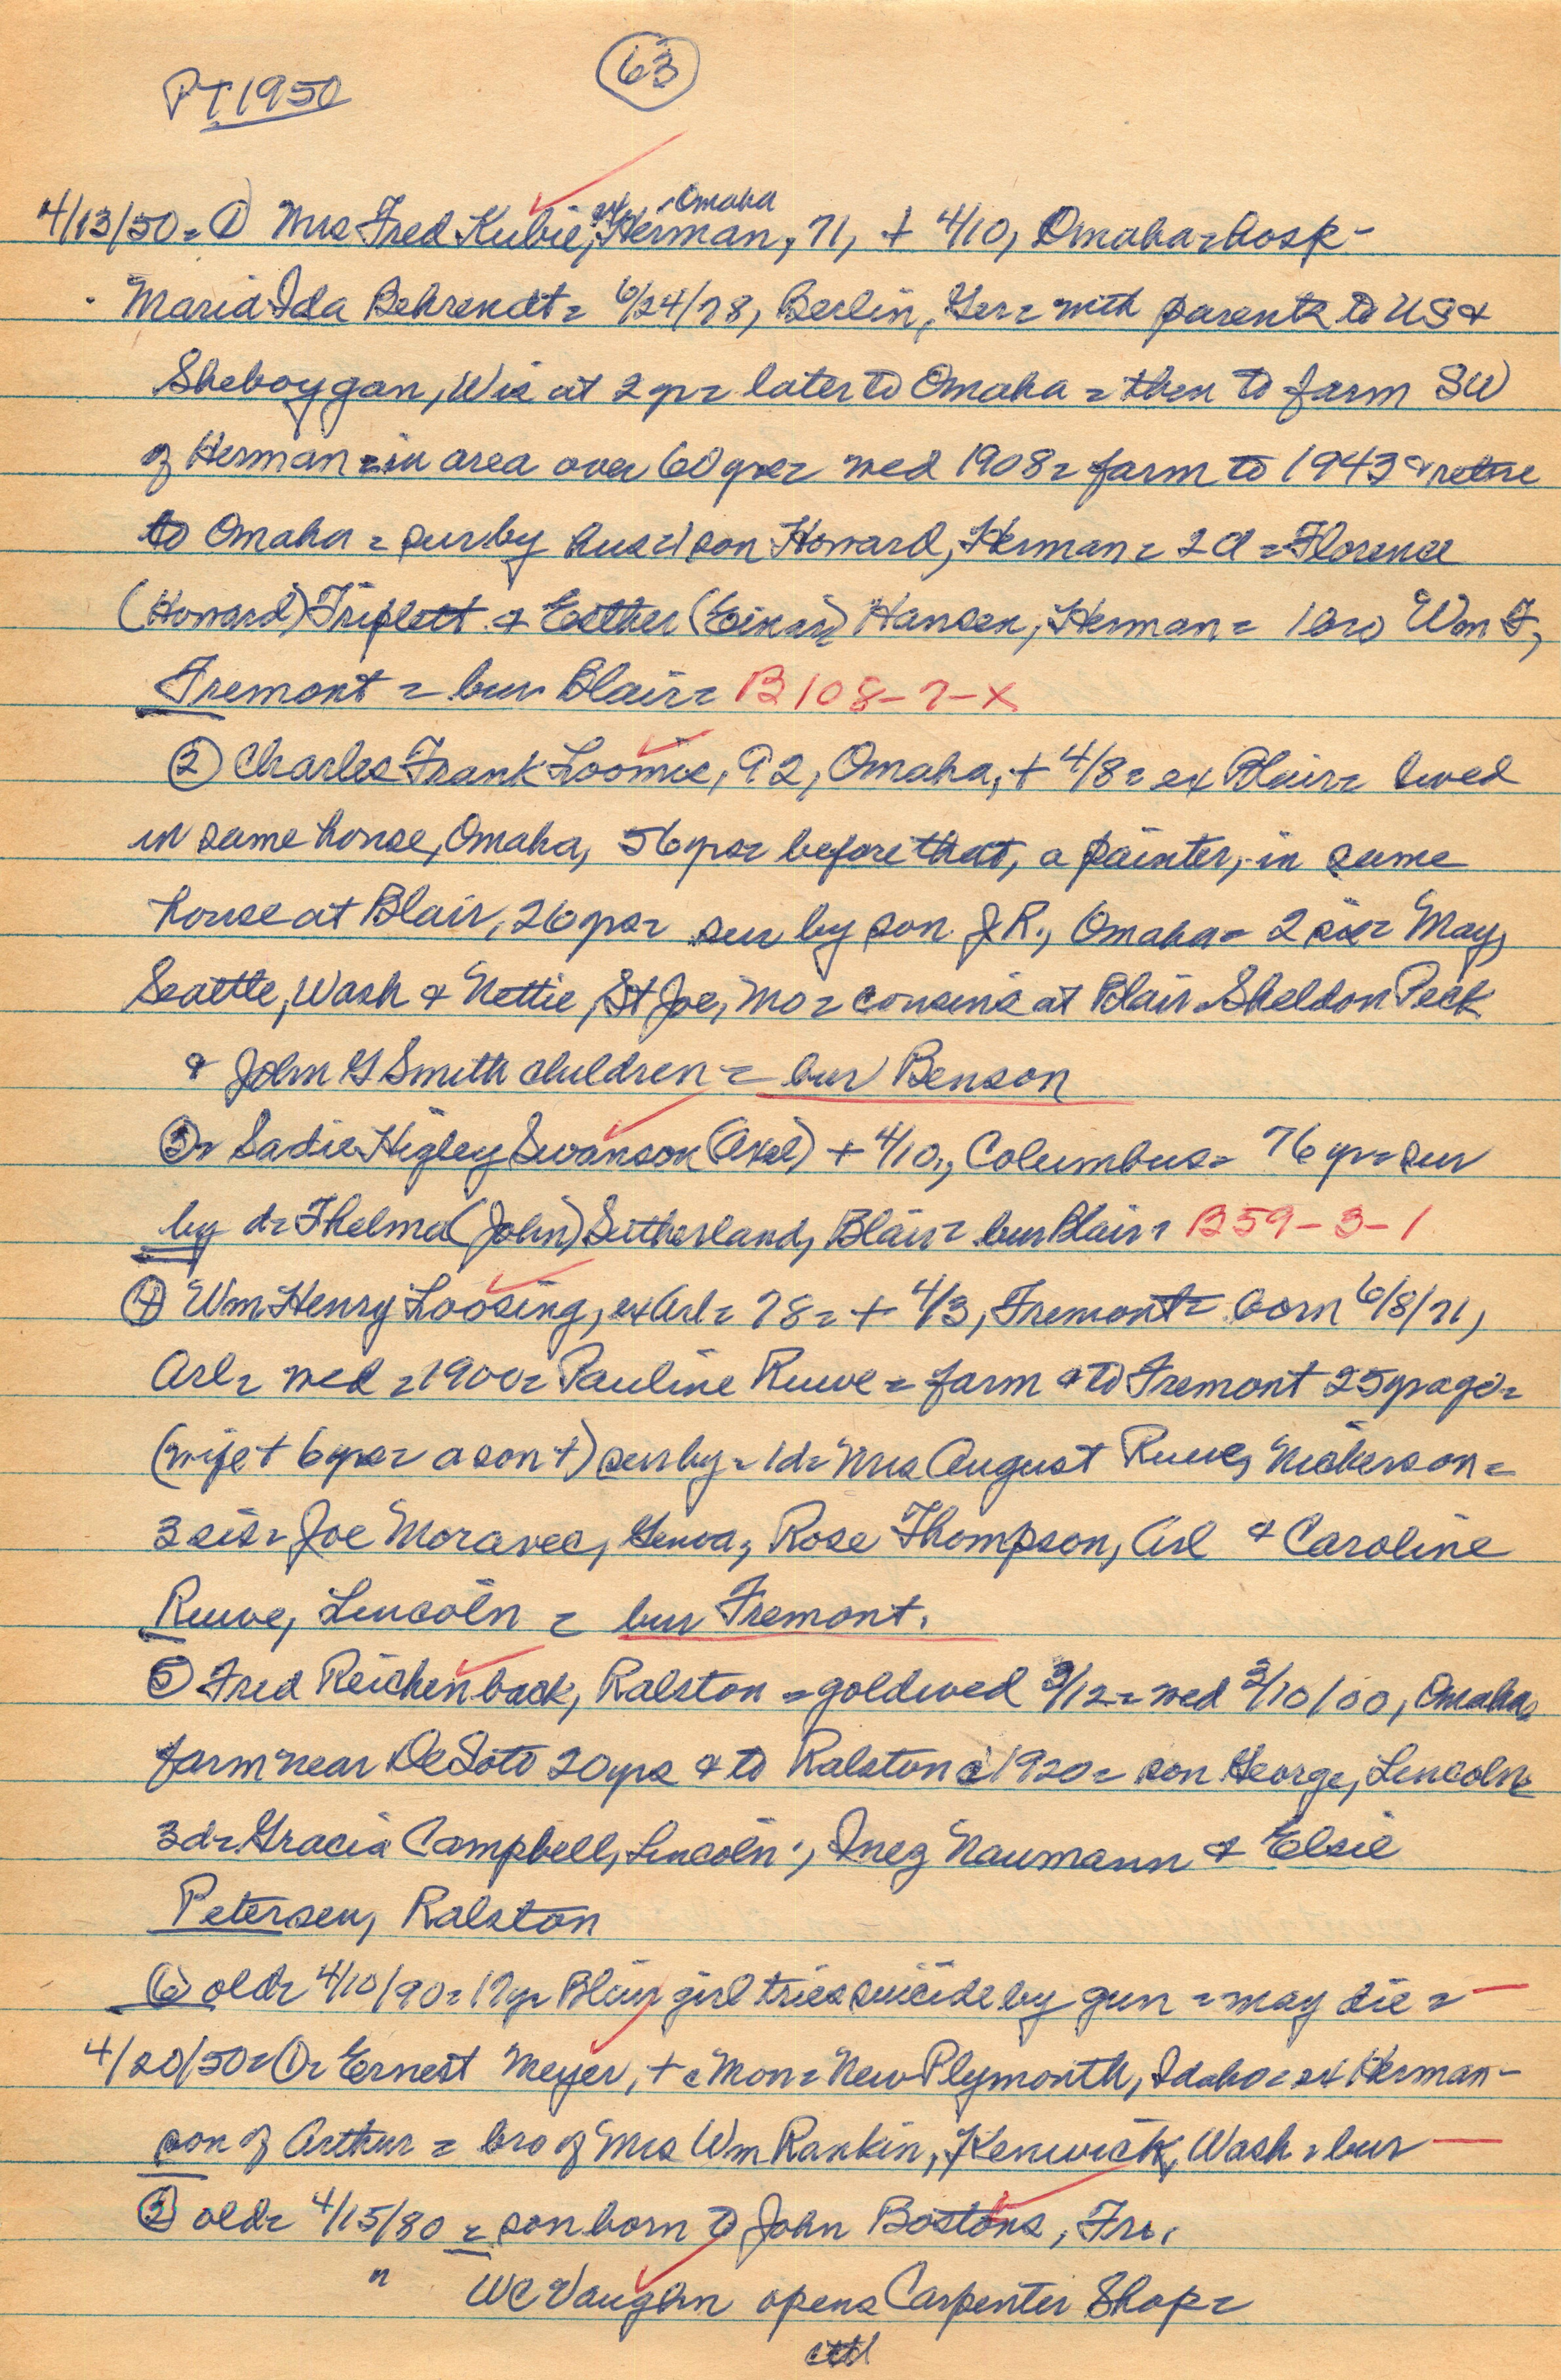 63
PT 1950
Omaha
4/13/50 = ① Mrs Fred Kubie, Herman, 71, + 4/10, Omaha = hosp -
Maria Ida Behrendt = 6/24/78, Berlin, Ger = with parents to US &
Sheboygan, Wis at 2 yr = later to Omaha = then to farm SW
of Herman = in area over 60 yrs = wed 1908 = farm to 1943 & retire
to Omaha = sur by hus = 1 son Howard, Herman = 2 d = Florence
(Howard) Triplett & Esther (Einar) Hansen, Herman = 1 bro Wm F,
Fremont = bur Blair = B108-7-X
② Charles Frank Loomis, 92, Omaha, + 4/8 = ex Blair = lived
in same house, Omaha, 56 yrs = before that, a painter, in same
house at Blair, 26 yrs = sur by son J R., Omaha = 2 sis = May,
Seattle, Wash & Nettie, St Joe, Mo = cousins at Blair = Sheldon Peck
& John G Smith children = bur Benson
③ = Sadie Higley Swanson (Axel) + 4/10, Columbus = 76 yr = sur
by d = Thelma (John) Sutherland, Blair = bur Blair = B59-3-1
④ Wm Henry Loosing, ex Arl = 78 = + 4/3, Fremont = born 6/8/71,
Arl = wed = 1900 = Pauline Ruwe = farm & to Fremont 25 yr ago =
(wife + 6 yrs = a son +) sur by = 1 d = Mrs August Ruwe, Nickerson =
3 sis = Joe Moravec, Genoa, Rose Thompson, Arl & Caroline
Ruwe, Lincoln = bur Fremont.
⑤ Fred Reichenback, Ralston = gold wed 3/12 = wed 3/10/00, Omaha
farm near DeSoto 20 yrs & to Ralston c 1920 = son George, Lincoln
3 d = Gracia Campbell, Lincoln, Inez Naumann & Elsie
Petersen, Ralston
⑥ old = 4/10/90 = 17 yr Blair girl tries suicide by gun = may die = —
4/20/50 = ① = Ernest Meyer, + c Mon = New Plymouth, Idaho = ex Herman -
son of Arthur = bro of Mrs Wm Rankin, Kenwick, Wash = bur —
② old = 4/15/80 = son born to John Bostons, Fre.
" WC Vaughn opens Carpenter Shop =